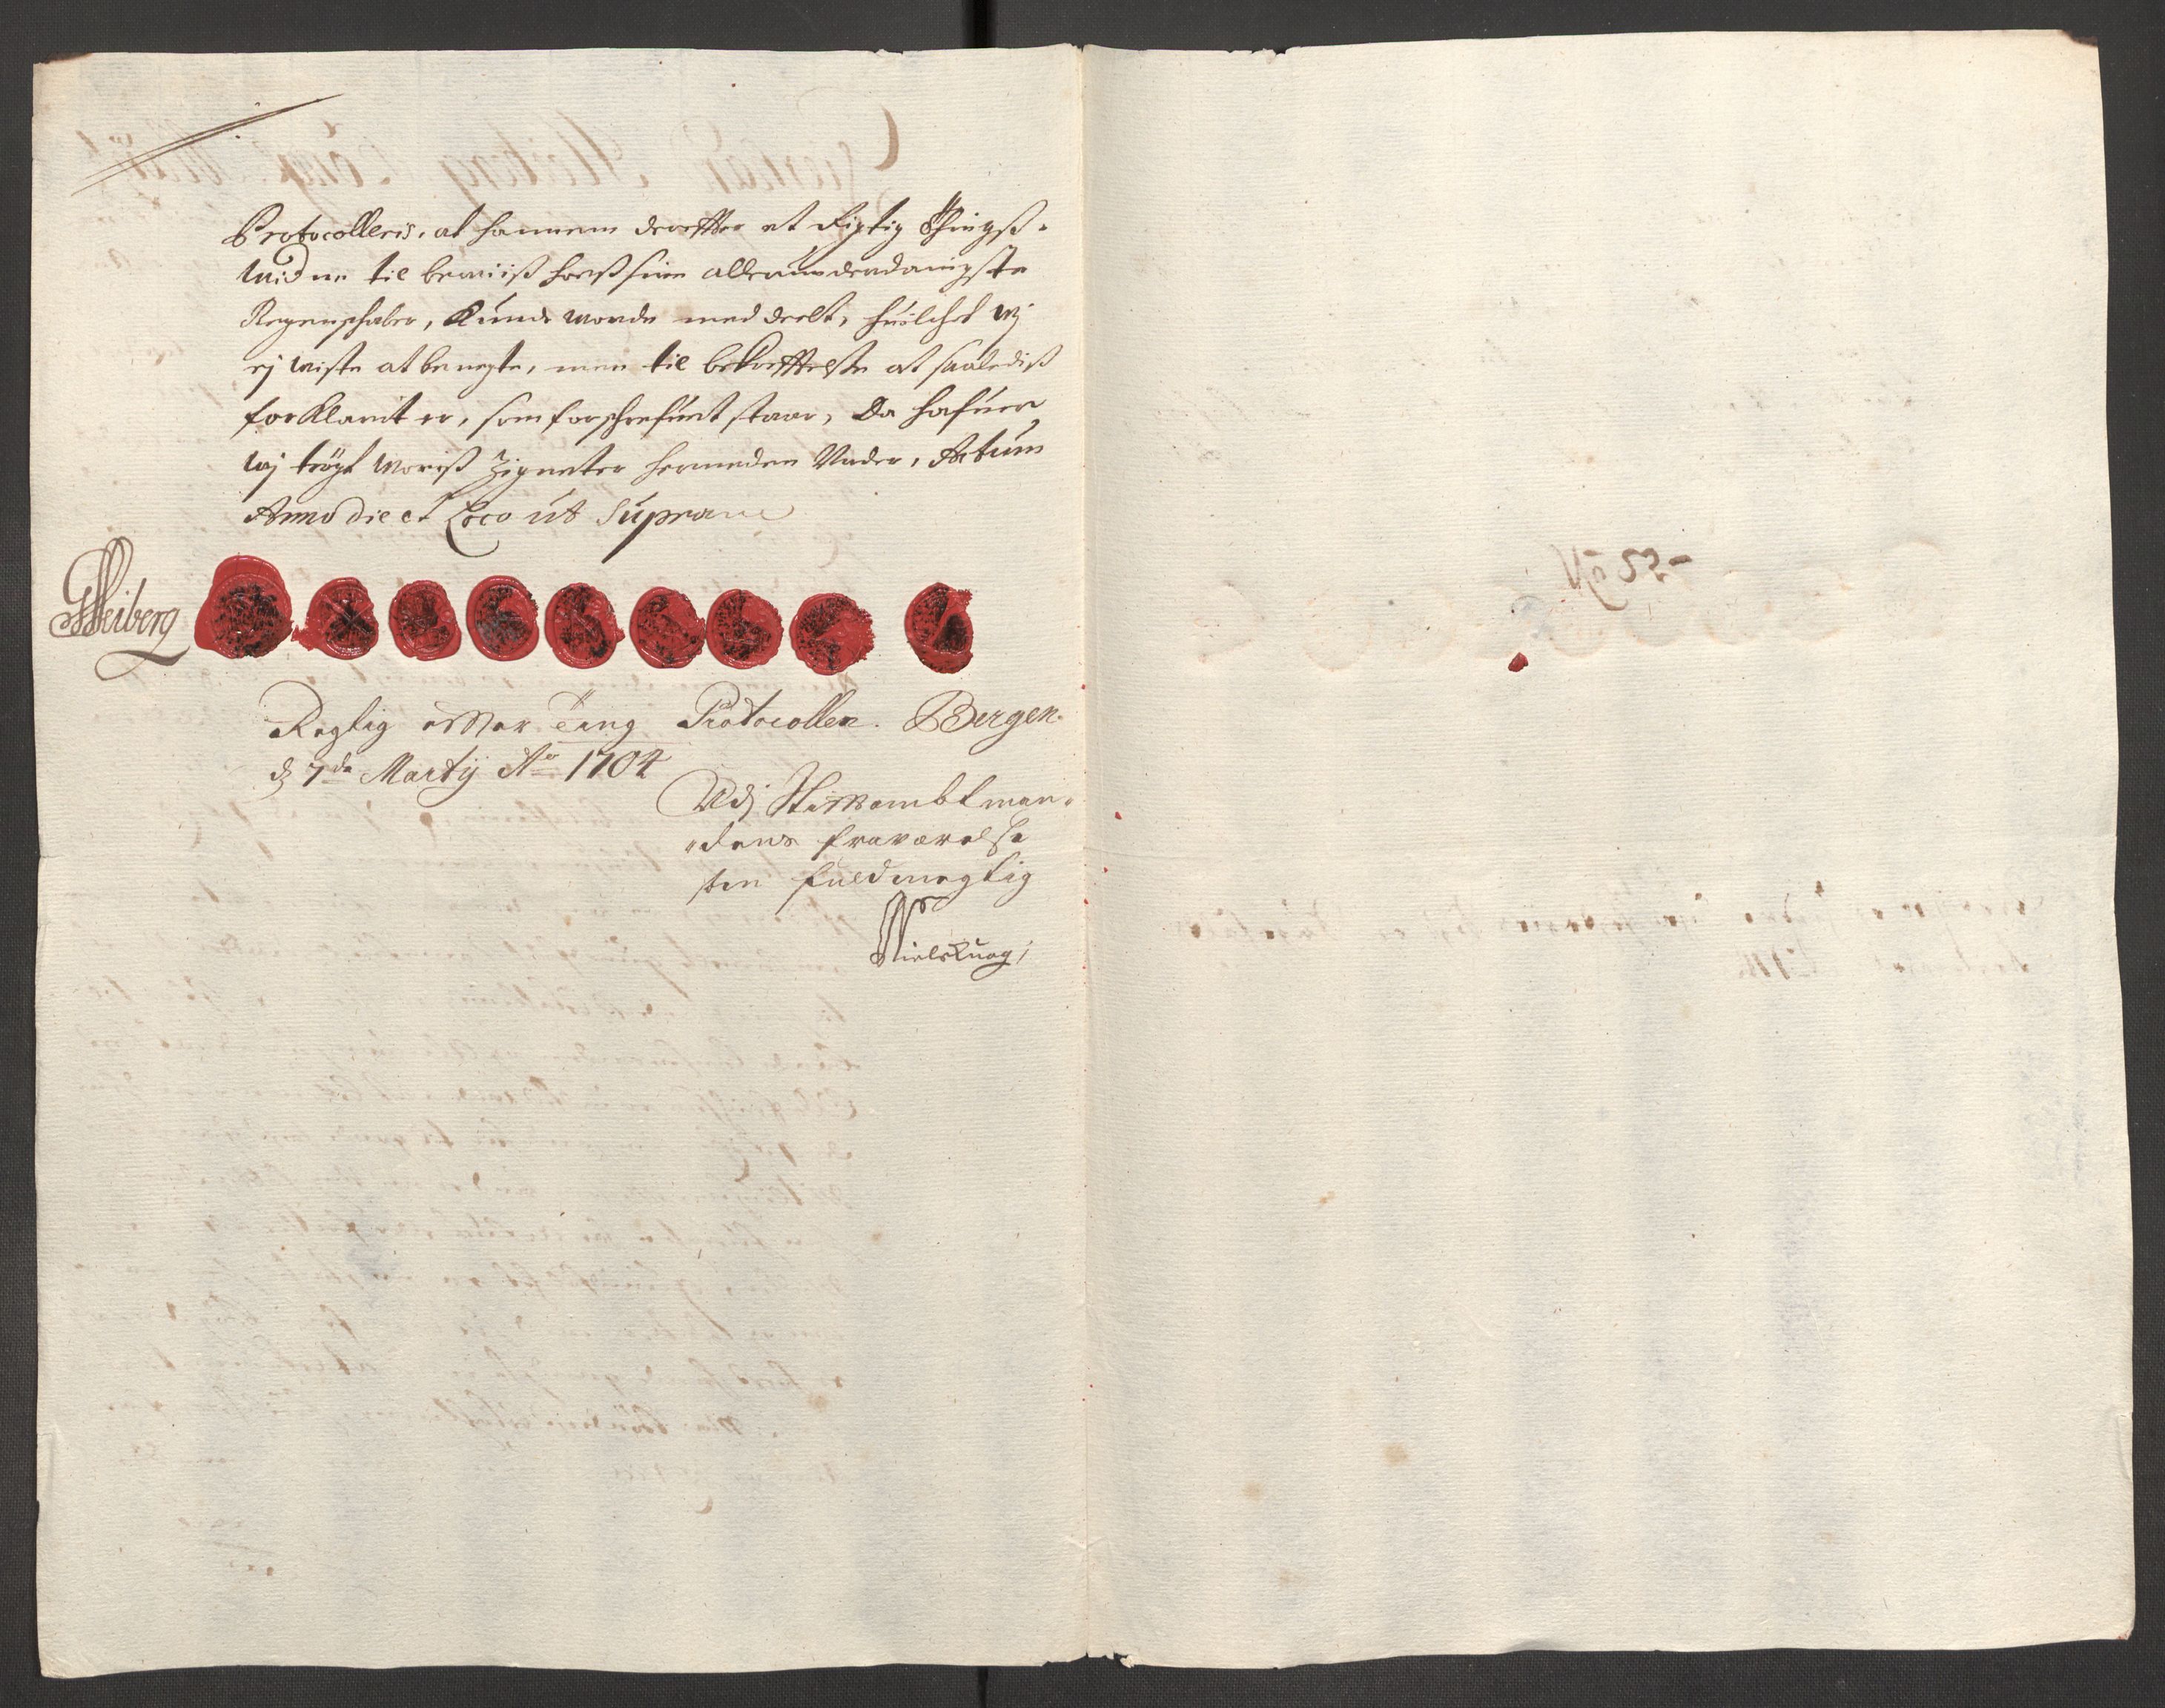 Protocolleris, at hannem derefter et Rigtig Thingß-
widne til beviiß hoesß sine allerunderdanigste
Regenschaber, Kunde worde meddeelt, huilchet wj
ej wiste at benegte, men til bekreftelse at saalediß
forklarit er, som forschrefuit staar, Da hafuer
wj trögt woriß Zigneter hermeden Under, Actum
Anno die et Loco ut Supra
GHeiberg
Rigtig efter Ting Protocollen. Bergen
d 7de Martij Ao 1704
Udj Stiftambtman-
dens fraværelse
sin fuldmegtig
Niels Knag
No 52-